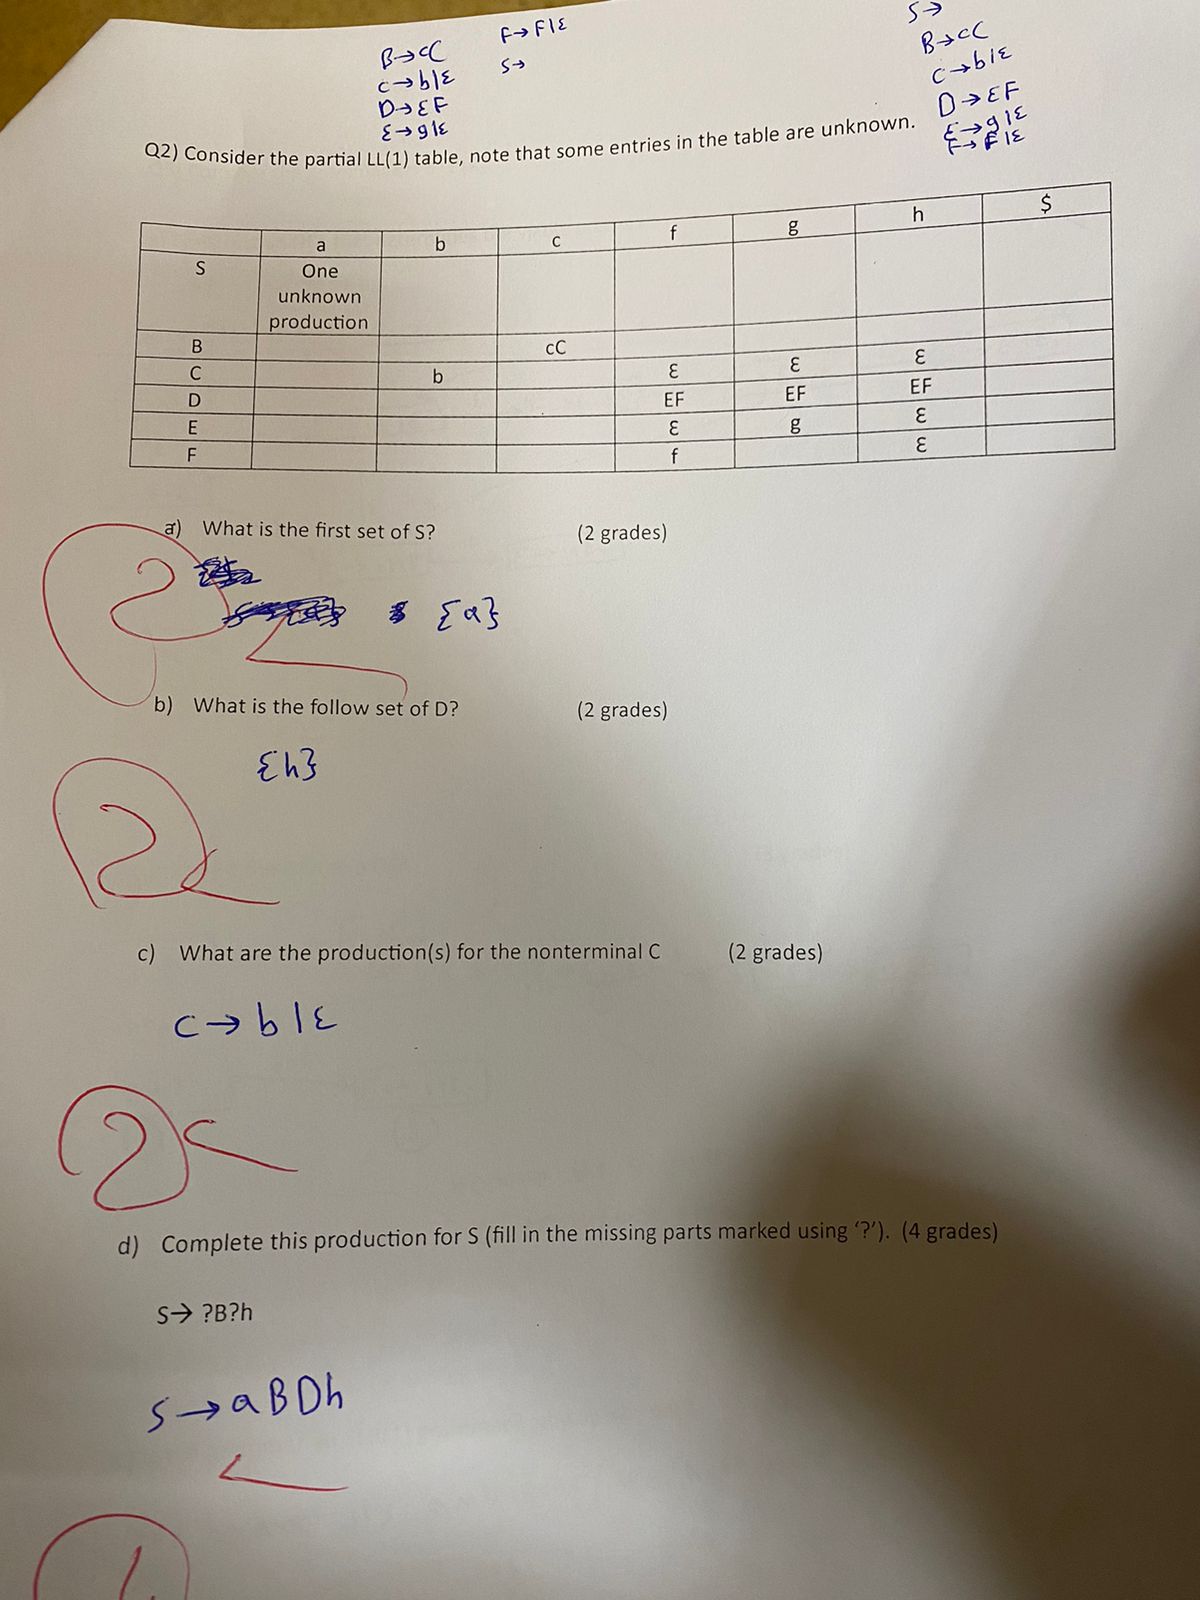 B→cC
C→b|ε
D→EF
E→g|ε
F→F|ε
S→
S→
B→cC
C→b|ε
D→EF
E→g|ε
F→F|ε
Q2) Consider the partial LL(1) table, note that some entries in the table are unknown.
a b c f g h $
S One unknown production
B cC
C b ε ε ε
D EF EF EF
E ε g ε
F f ε
a) What is the first set of S? (2 grades)
2
{a}
b) What is the follow set of D? (2 grades)
{h}
2
c) What are the production(s) for the nonterminal C (2 grades)
C→b|ε
2
d) Complete this production for S (fill in the missing parts marked using ‘?’). (4 grades)
S→ ?B?h
S→aBDh